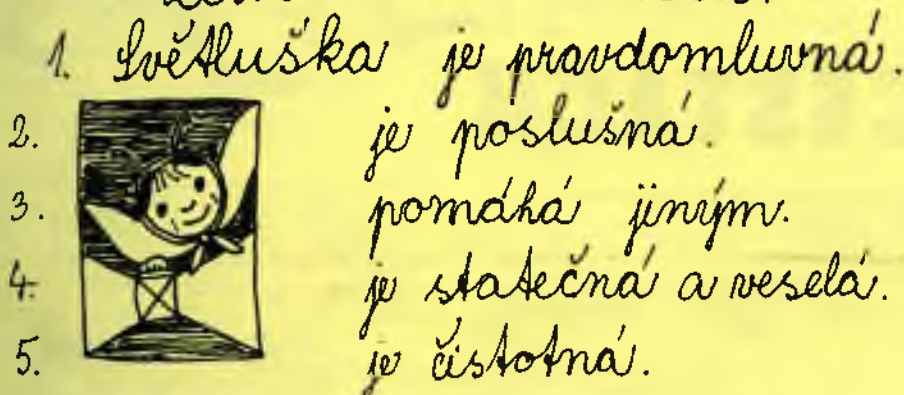 1. Světluška je pravdomluvná.
2. je poslušná.
3. pomáhá jiným.
4. je statečná a veselá.
5. je čistotná.